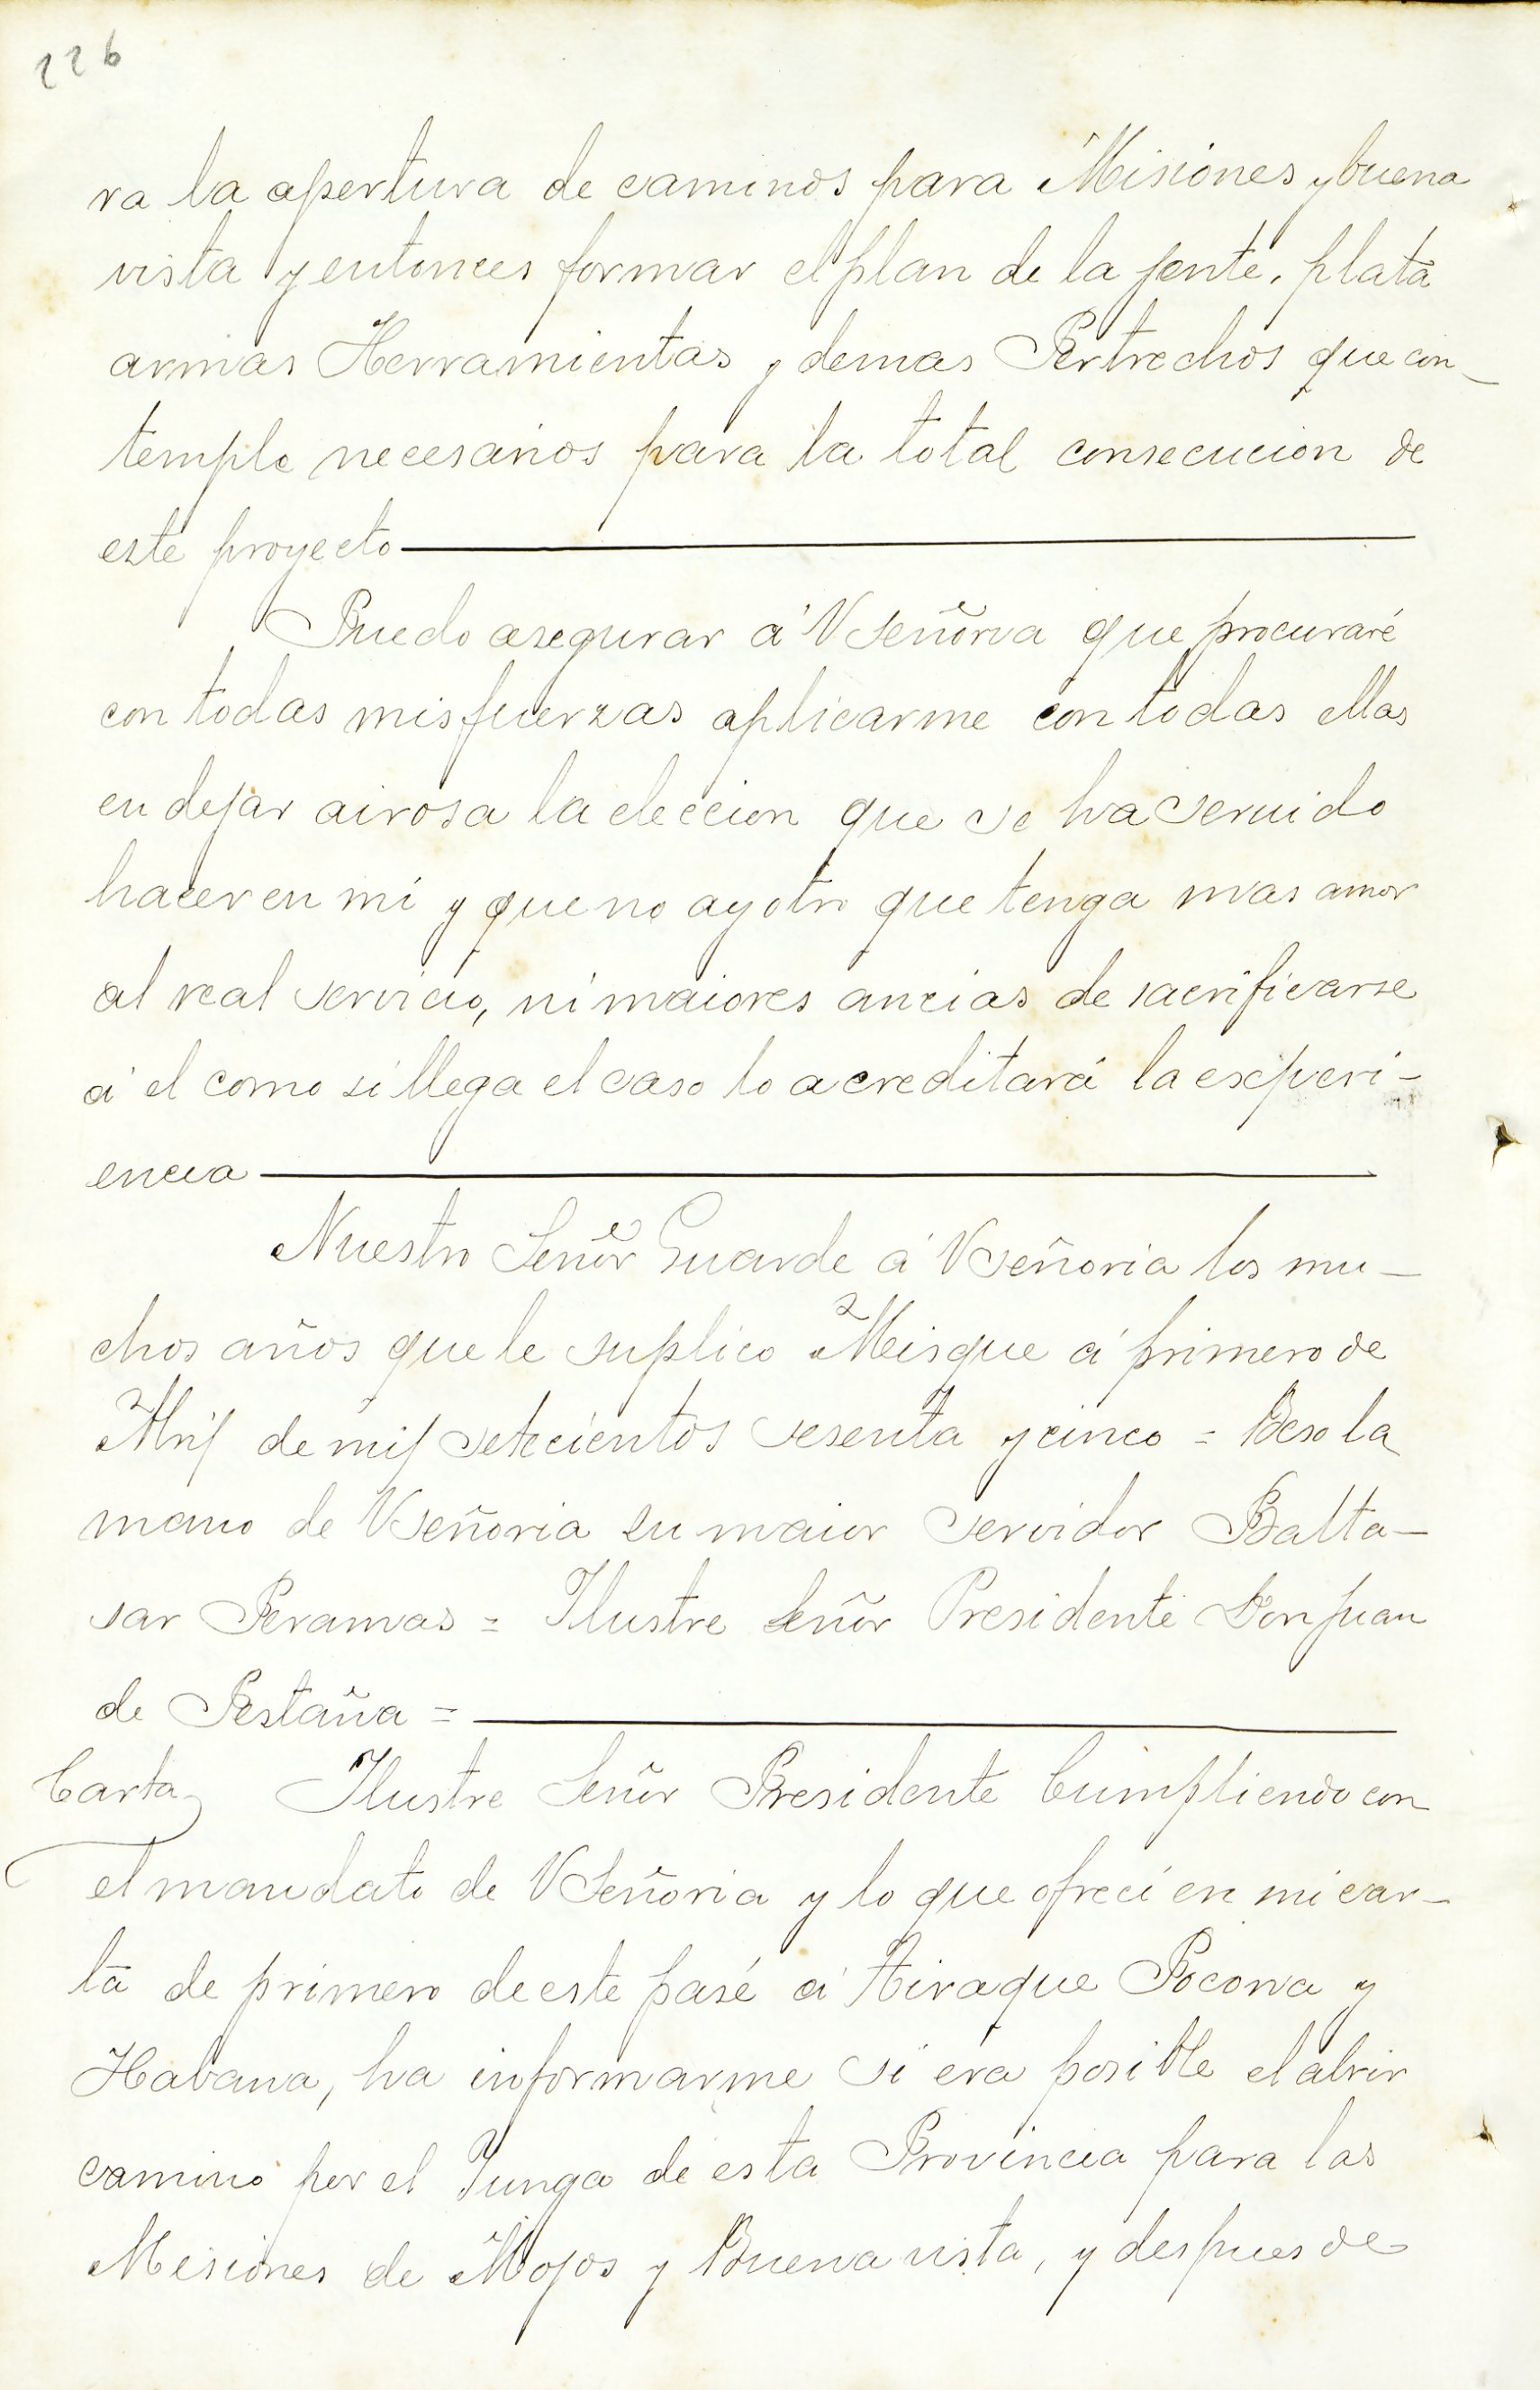 226
ra la apertura de caminos para Misiones y buena
vista y entonces formar el plan de la jente, plata
armas Herramientas y demas Pertrechos que con-
temple necesarios para la total consecucion de
este proyecto
Puedo asegurar á VSeñoria que procuraré
con todas mis fuerzas aplicarme con todas ellas
en dejar airosa la eleccion que se ha seruido
hacer en mi y que no ay otro que tenga mas amor
al real servicio, ni maiores ancias de sacrificarse
á el como si llega el caso lo acreditará la experi-
encia
Nuestro Señor Guarde á VSeñoria los mu-
chos años que le suplico Meisque á primero de
Abril de mil setecientos sesenta y cinco = Beso la
mano de VSeñoria su maior servidor Balta-
sar Peramas = Ilustre Señor Presidente Don Juan
de Pestaña =
Carta Ilustre Señor Presidente Cumpliendo con
el mandato de VSeñoria y lo que ofreci en mi car-
ta de primero de este pasé á Tiraque Pocona y
Habana, ha informarme si era posible el abrir
camino por el Yunga de esta Provincia para las
Misiones de Mojos y Buena vista, y despues de